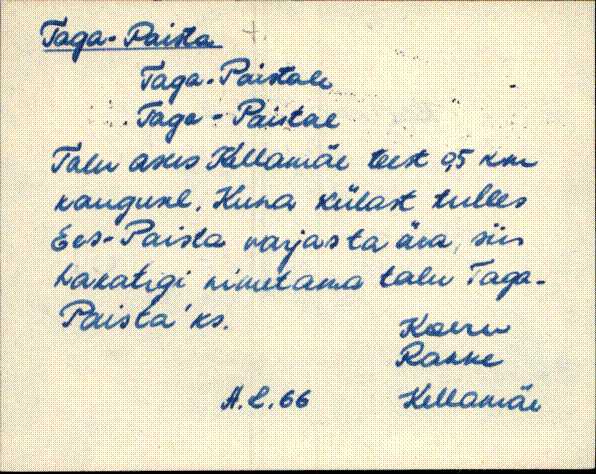 Taga-Paista
Taga-Paistale
Taga-Paistal
Talu asus Kellamäe teest 0,5 km
kaugusel. Kuna külast tulles
Ees-Paista varjas ta ära, siis
hakatigi nimetama talu Taga-
Paista'ks.
Koeru
Rakke
A.L.66 Kellamäe